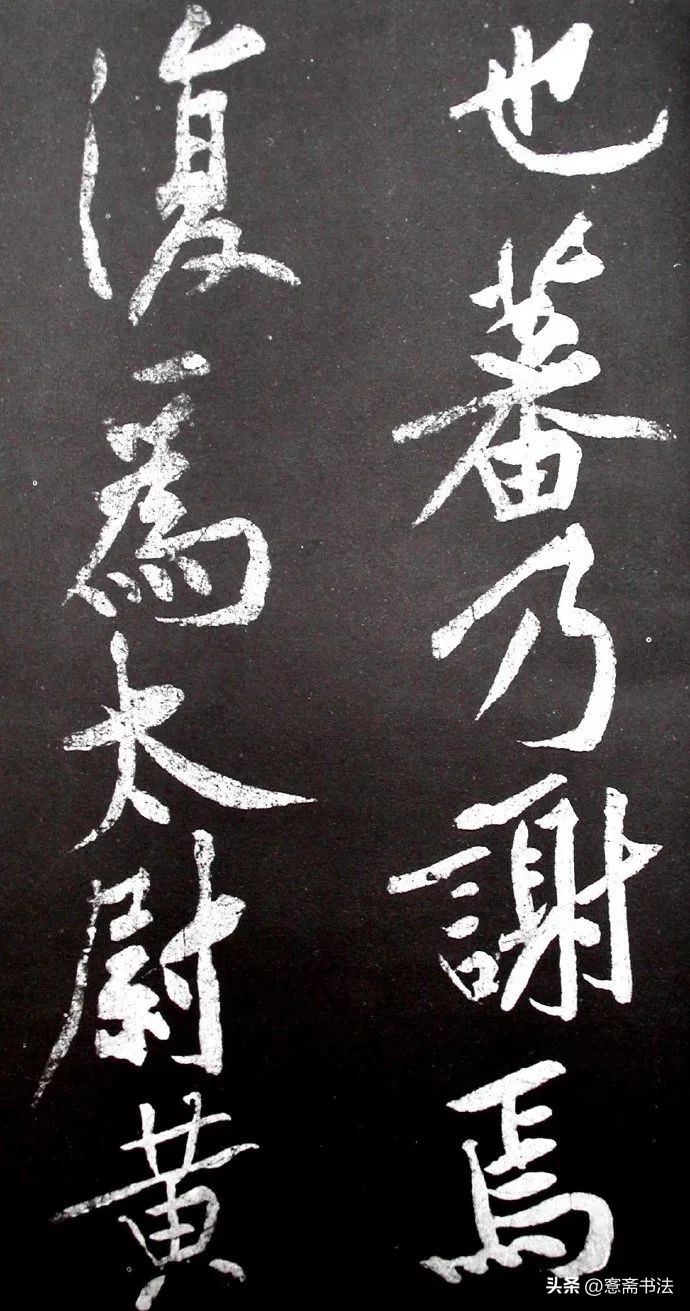 也蕃乃謝焉
復為太尉黄
头条 @愙斋书法